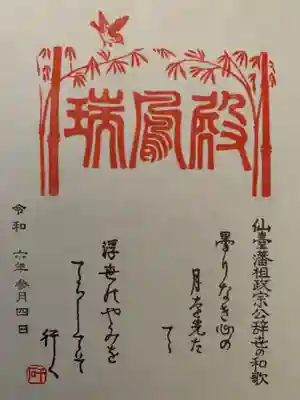 瑞鳳殿
仙臺藩祖政宗公辞世の和歌
曇りなき心の
月を先た
てゝ
浮世のやみを
てらしてそ
行く
令和 六年 参月四日